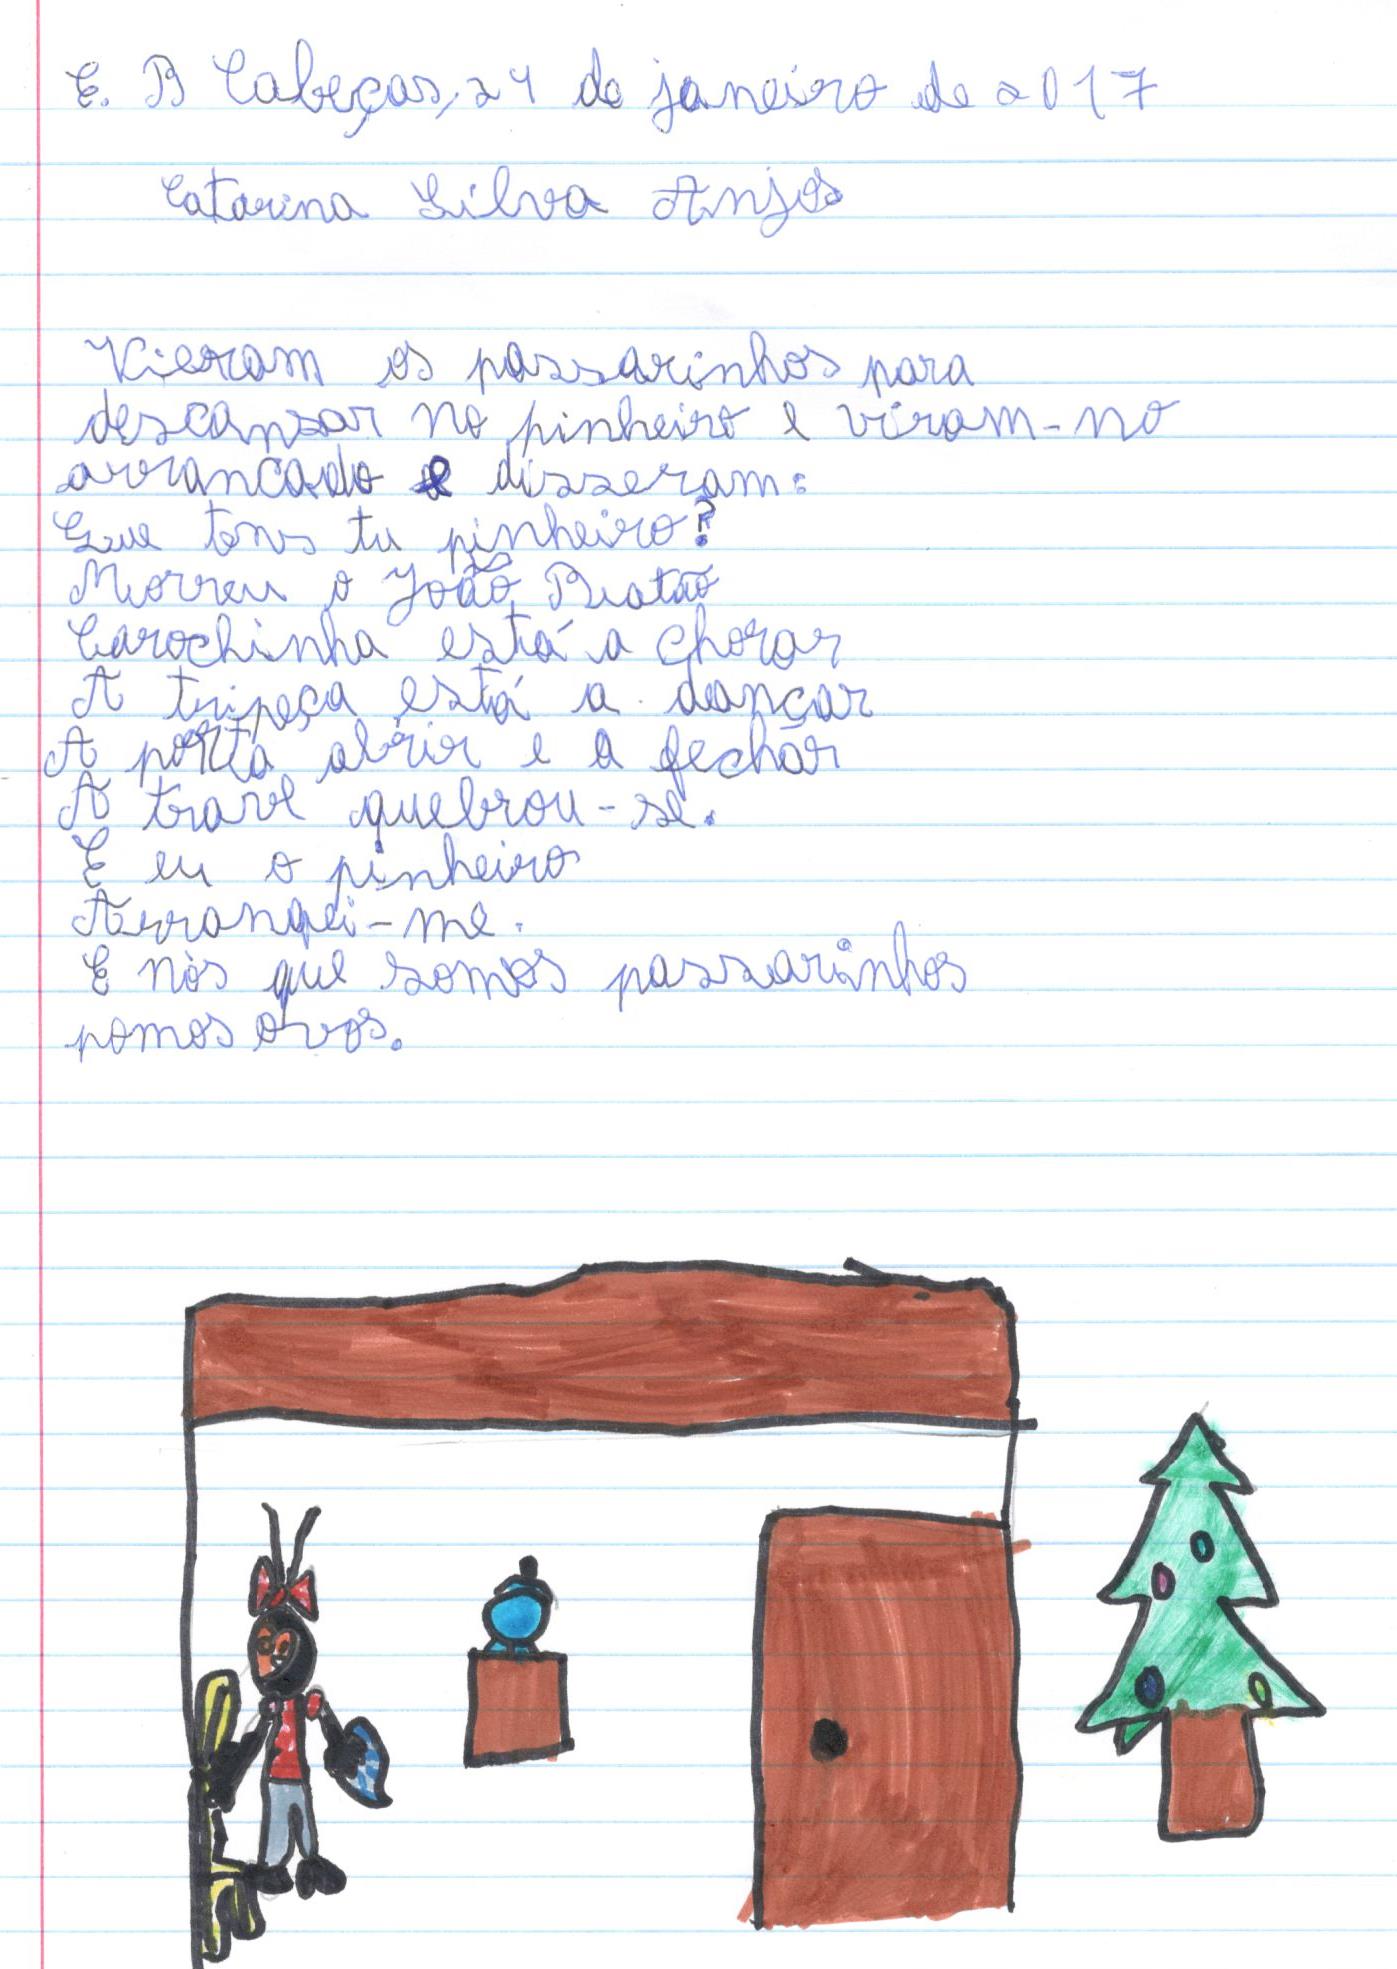 E. B Cabeças, 24 de janeiro de 2017
Catarina Silva Anjos
Vieram os passarinhos para
descansar no pinheiro e viram-no
arrancado e disseram:
Que tens tu pinheiro?
Morreu o João Ratão
Carochinha está a chorar
A tripeça está a dançar
A porta abrir e a fechar
A trave quebrou-se.
E eu o pinheiro
Arranquei-me.
E nós que somos passarinhos
pomos ovos.